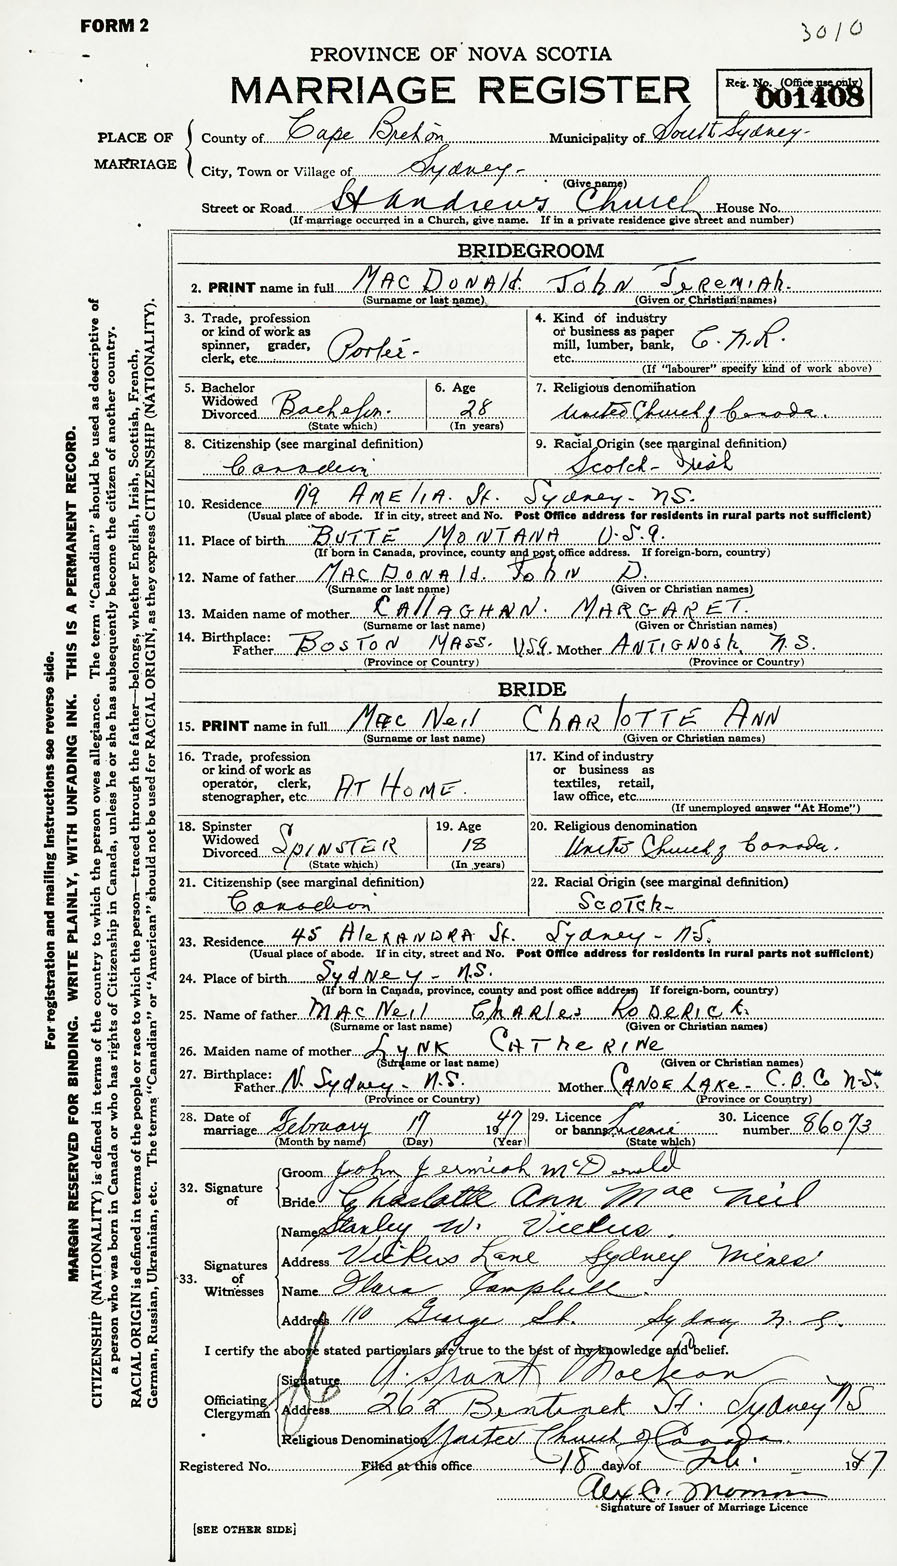 FORM 2
3010
PROVINCE OF NOVA SCOTIA
MARRIAGE REGISTER
Reg. No. (Office use only)
001408
PLACE OF MARRIAGE
County of Cape Breton Municipality of South Sydney
City, Town or Village of Sydney
(Give name)
Street or Road St Andrews Church House No.
(If marriage occurred in a Church, give name. If in a private residence give street and number)
BRIDEGROOM
2. PRINT name in full MacDonald. John Jeremiah.
(Surname or last name) (Given or Christian names)
3. Trade, profession or kind of work as spinner, grader, clerk, etc. Porter
4. Kind of industry or business as paper mill, lumber, bank, etc. C.N.R.
(If "labourer" specify kind of work above)
5. Bachelor Widowed Divorced Bachelor
(State which)
6. Age 28
(In years)
7. Religious denomination United Church of Canada.
8. Citizenship (see marginal definition) Canadian
9. Racial Origin (see marginal definition) Scotch-Irish
10. Residence 79 Amelia St. Sydney - N.S.
(Usual place of abode. If in city, street and No. Post Office address for residents in rural parts not sufficient)
11. Place of birth Butte Montana U.S.A.
(If born in Canada, province, county and post office address. If foreign-born, country)
12. Name of father MacDonald. John D.
(Surname or last name) (Given or Christian names)
13. Maiden name of mother Callaghan. Margaret.
(Surname or last name) (Given or Christian names)
14. Birthplace: Father Boston Mass. USA. Mother Antignosh N.S.
(Province or Country) (Province or Country)
BRIDE
15. PRINT name in full MacNeil Charlotte Ann
(Surname or last name) (Given or Christian names)
16. Trade, profession or kind of work as operator, clerk, stenographer, etc. At Home.
17. Kind of industry or business as textiles, retail, law office, etc.
(If unemployed answer "At Home")
18. Spinster Widowed Divorced Spinster
(State which)
19. Age 18
(In years)
20. Religious denomination United Church of Canada.
21. Citizenship (see marginal definition) Canadian
22. Racial Origin (see marginal definition) Scotch-
23. Residence 45 Alexandra St. Sydney - N.S.
(Usual place of abode. If in city, street and No. Post Office address for residents in rural parts not sufficient)
24. Place of birth Sydney - N.S.
(If born in Canada, province, county and post office address If foreign-born, country)
25. Name of father MacNeil Charles Roderick.
(Surname or last name) (Given or Christian names)
26. Maiden name of mother Lynk Catherine
(Surname or last name) (Given or Christian names)
27. Birthplace: Father N. Sydney - N.S. Mother Canoe Lake - C.B.Co N.S.
(Province or Country) (Province or Country)
28. Date of marriage February 17 1947
(Month by name) (Day) (Year)
29. Licence or banns Licence
(State which)
30. Licence number 86073
32. Signature of
Groom John Jermiah McDonald
Bride Charlotte Ann MacNeil
33. Signatures of Witnesses
Name Stanley W. Vickers.
Address Vickers Lane Sydney Mines
Name Flora Campbell.
Address 110 George St. Sydney N.S.
I certify the above stated particulars are true to the best of my knowledge and belief.
Officiating Clergyman
Signature A. Grant MacKeon
Address 262 Bentinck St. Sydney NS
Religious Denomination United Church of Canada.
Registered No. Filed at this office 18 day of Feb. 1947
Signature of Issuer of Marriage Licence
[SEE OTHER SIDE]
For registration and mailing instructions see reverse side.
MARGIN RESERVED FOR BINDING. WRITE PLAINLY, WITH UNFADING INK. THIS IS A PERMANENT RECORD.
CITIZENSHIP (NATIONALITY) is defined in terms of the country to which the person owes allegiance. The term "Canadian" should be used as descriptive of
a person who was born in Canada or who has rights of Citizenship in Canada, unless he or she has subsequently become the citizen of another country.
RACIAL ORIGIN is defined in terms of the people or race to which the person—traced through the father—belongs, whether English, Irish, Scottish, French,
German, Russian, Ukrainian, etc. The terms "Canadian" or "American" should not be used for RACIAL ORIGIN, as they express CITIZENSHIP (NATIONALITY).